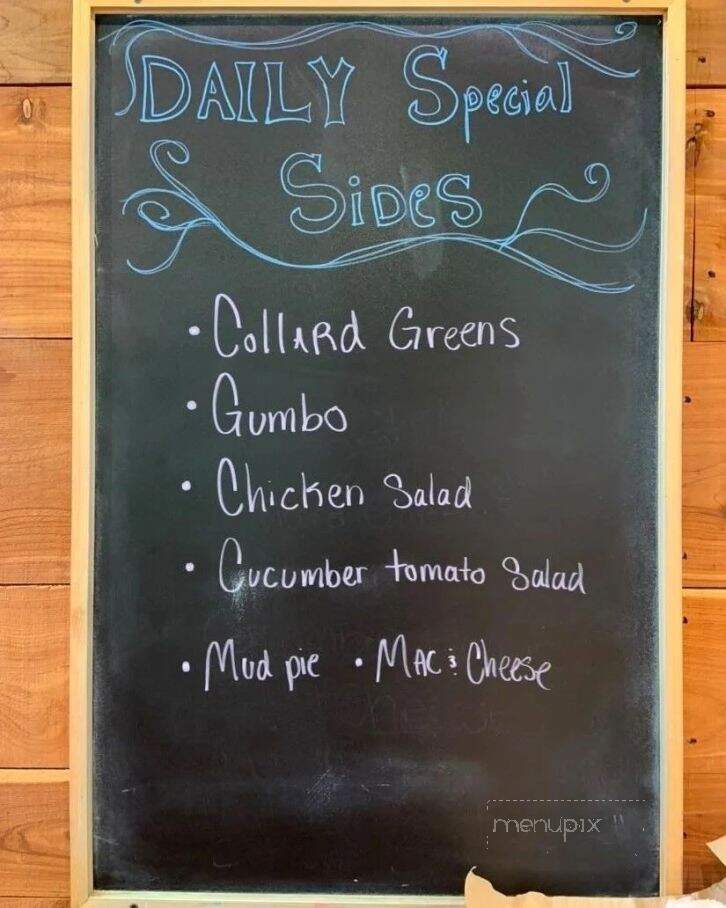 DAILY Special
Sides
• Collard Greens
• Gumbo
• Chicken Salad
• Cucumber tomato Salad
• Mud pie • Mac & Cheese
menupix